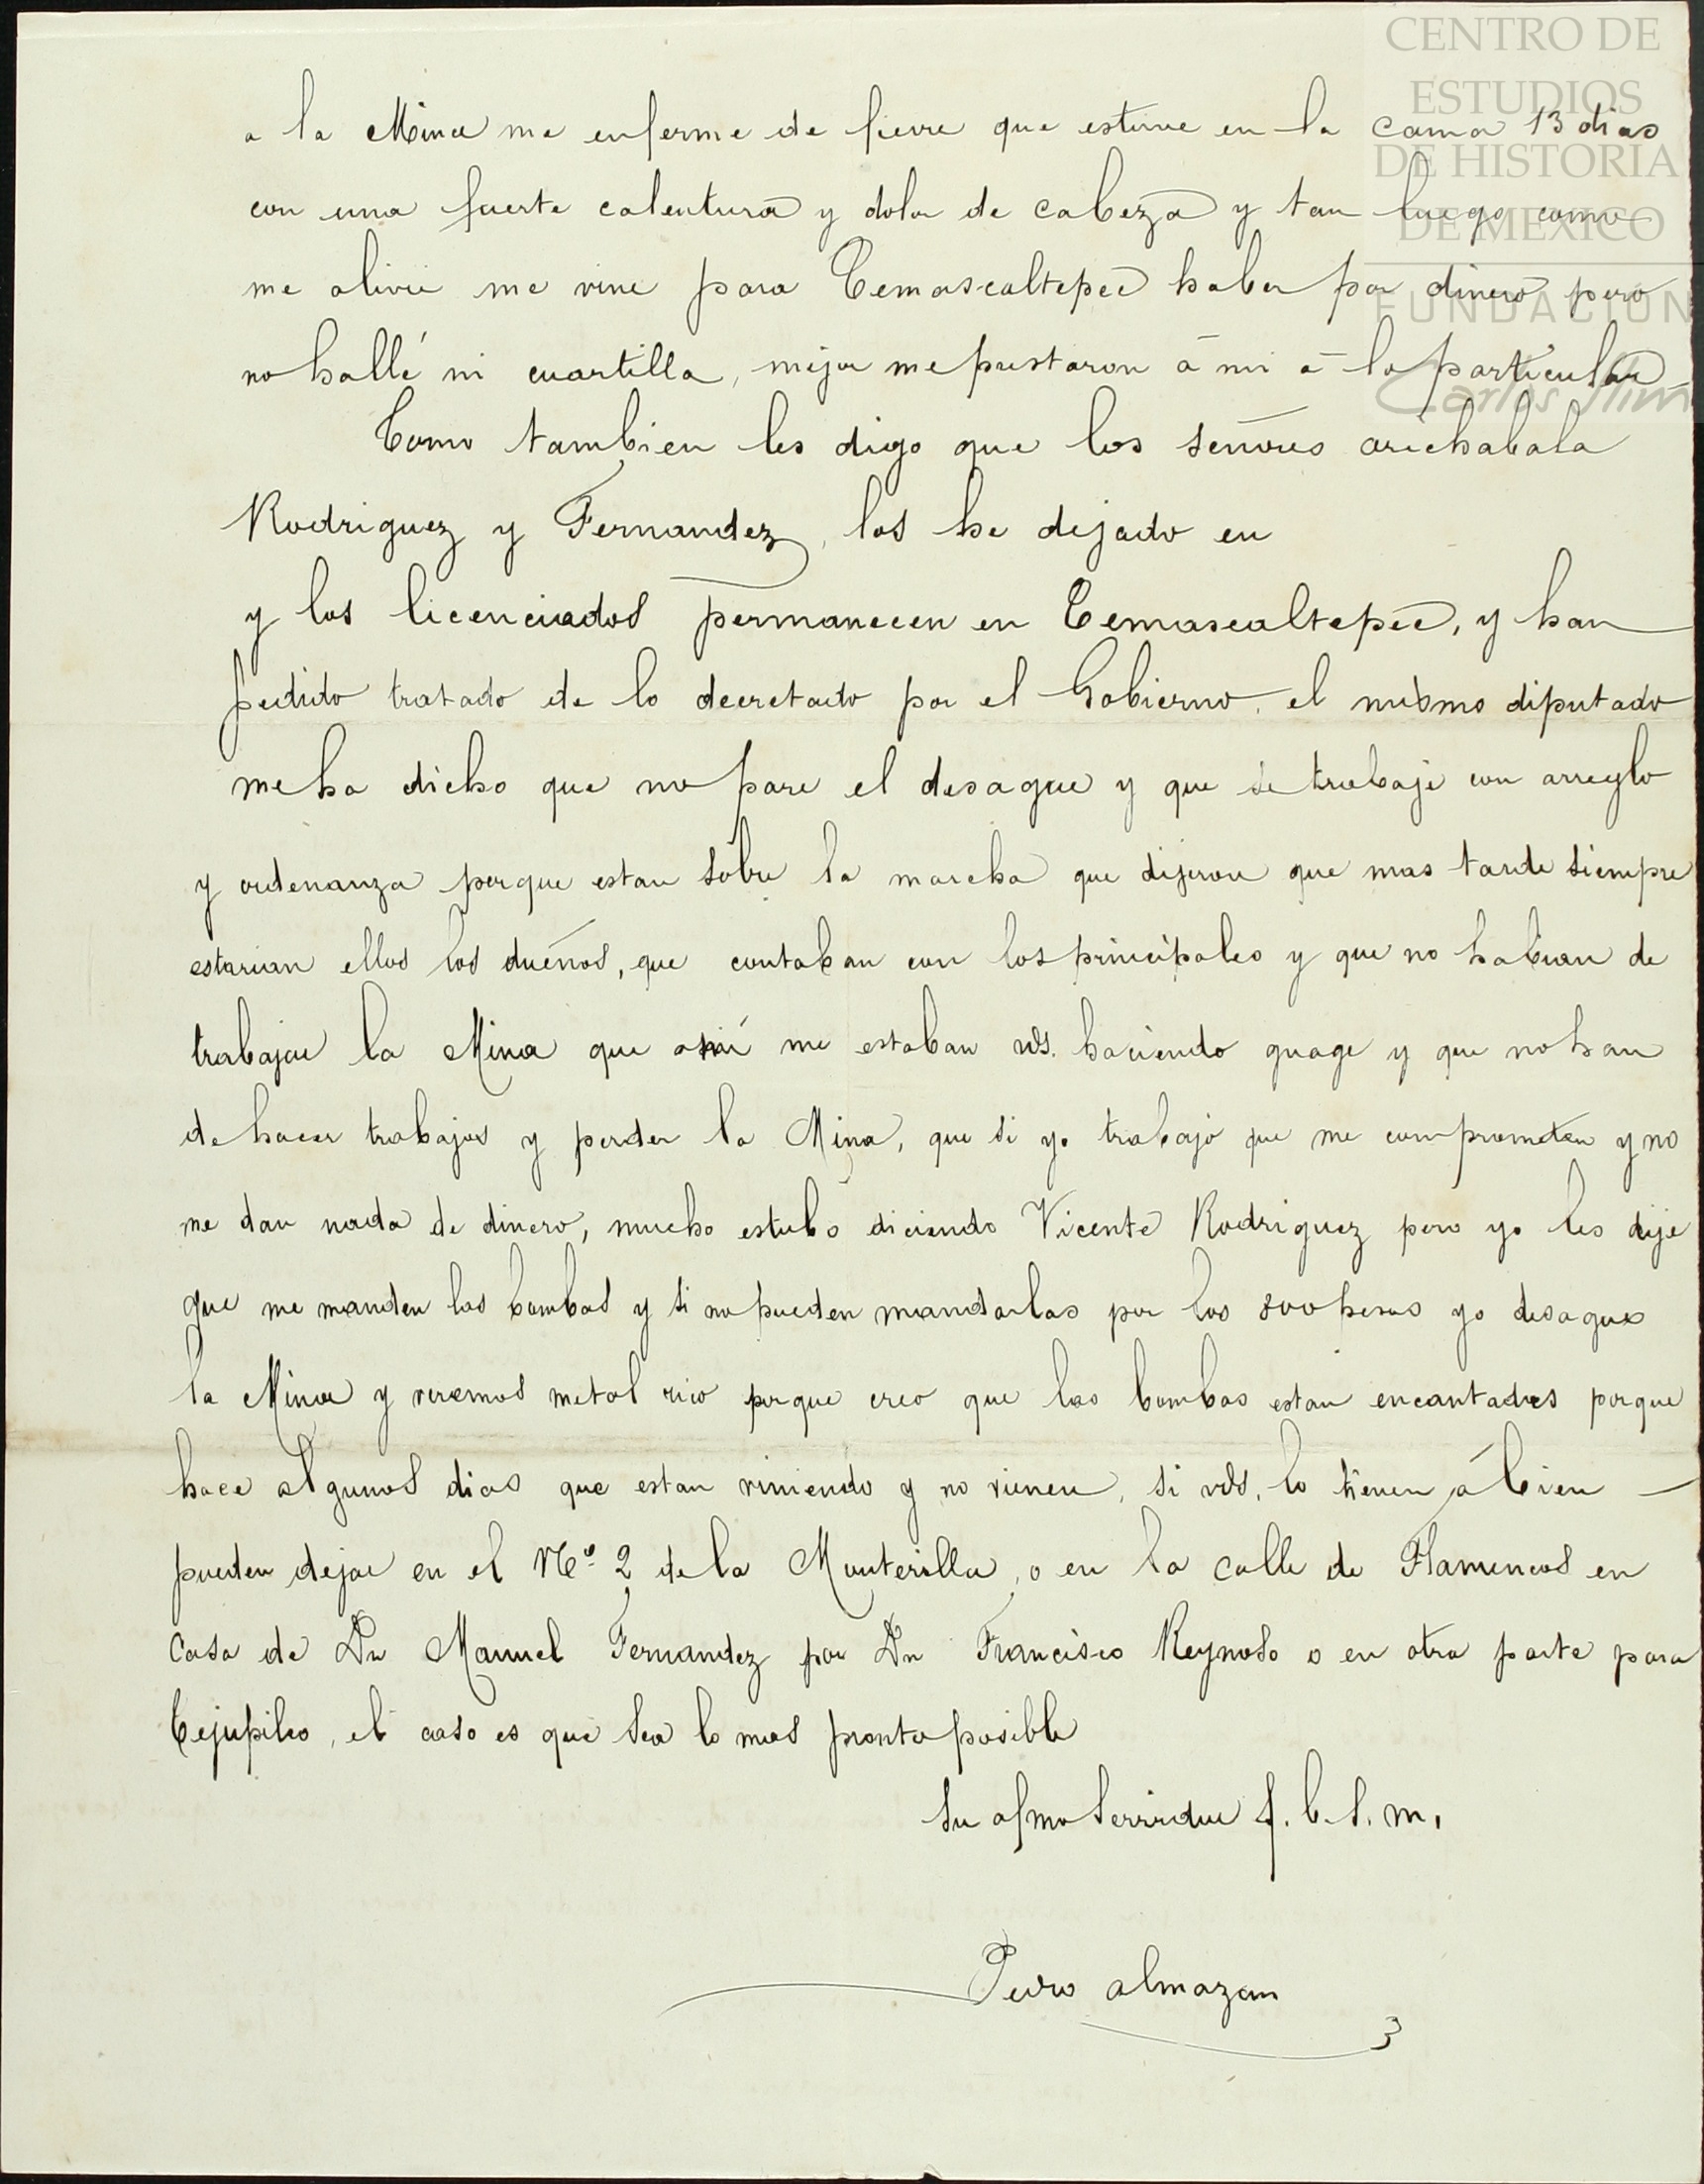 CENTRO DE
ESTUDIOS
DE HISTORIA
DE MEXICO
FUNDACIÓN
Carlos Slim
a la Mina me enferme de fievre que estuve en la cama 13 dias
con una fuerte calentura y dolor de cabeza y tan luego como
me alivie me vine para Temascaltepec haber por dinero pero
no hallé ni cuartilla, mejor me prestaron á mi á lo particular
Como tambien les digo que los señores arichabala
Rodriguez y Fernandez, los he dejado en
y los licenciados permanecen en Temascaltepec, y han
pedido tratado de lo decretado por el Gobierno, el mismo diputado
me ha dicho que no pare el desague y que se trabaje con arreglo
y ordenanza porque estan sobre la marcha que dijeron que mas tarde siempre
estarian ellos los dueños, que contaban con los principales y que no habian de
trabajar la Mina que asi me estaban vds. haciendo guage y que no han
de hacer trabajos y perder la Mina, que si yo trabajo que me comprometen y no
me dan nada de dinero, mucho estubo diciendo Vicente Rodriguez pero yo les dije
que me manden las bombas y si no pueden mandarlas por los 800 pesos yo desague
la Mina y veremos metal rico porque creo que las bombas estan encantadas porque
hace algunos dias que estan viniendo y no vienen, si vds. lo tienen á bien
pueden dejar en el Nº 2 de la Monterilla, o en la calle de Flamencos en
casa de Dn Manuel Fernandez por Dn Francisco Reynoso o en otra parte para
Tejupilco, el caso es que sea lo mas pronto posible
Su afmo Servidor q. b. s. m.
Pedro almazan